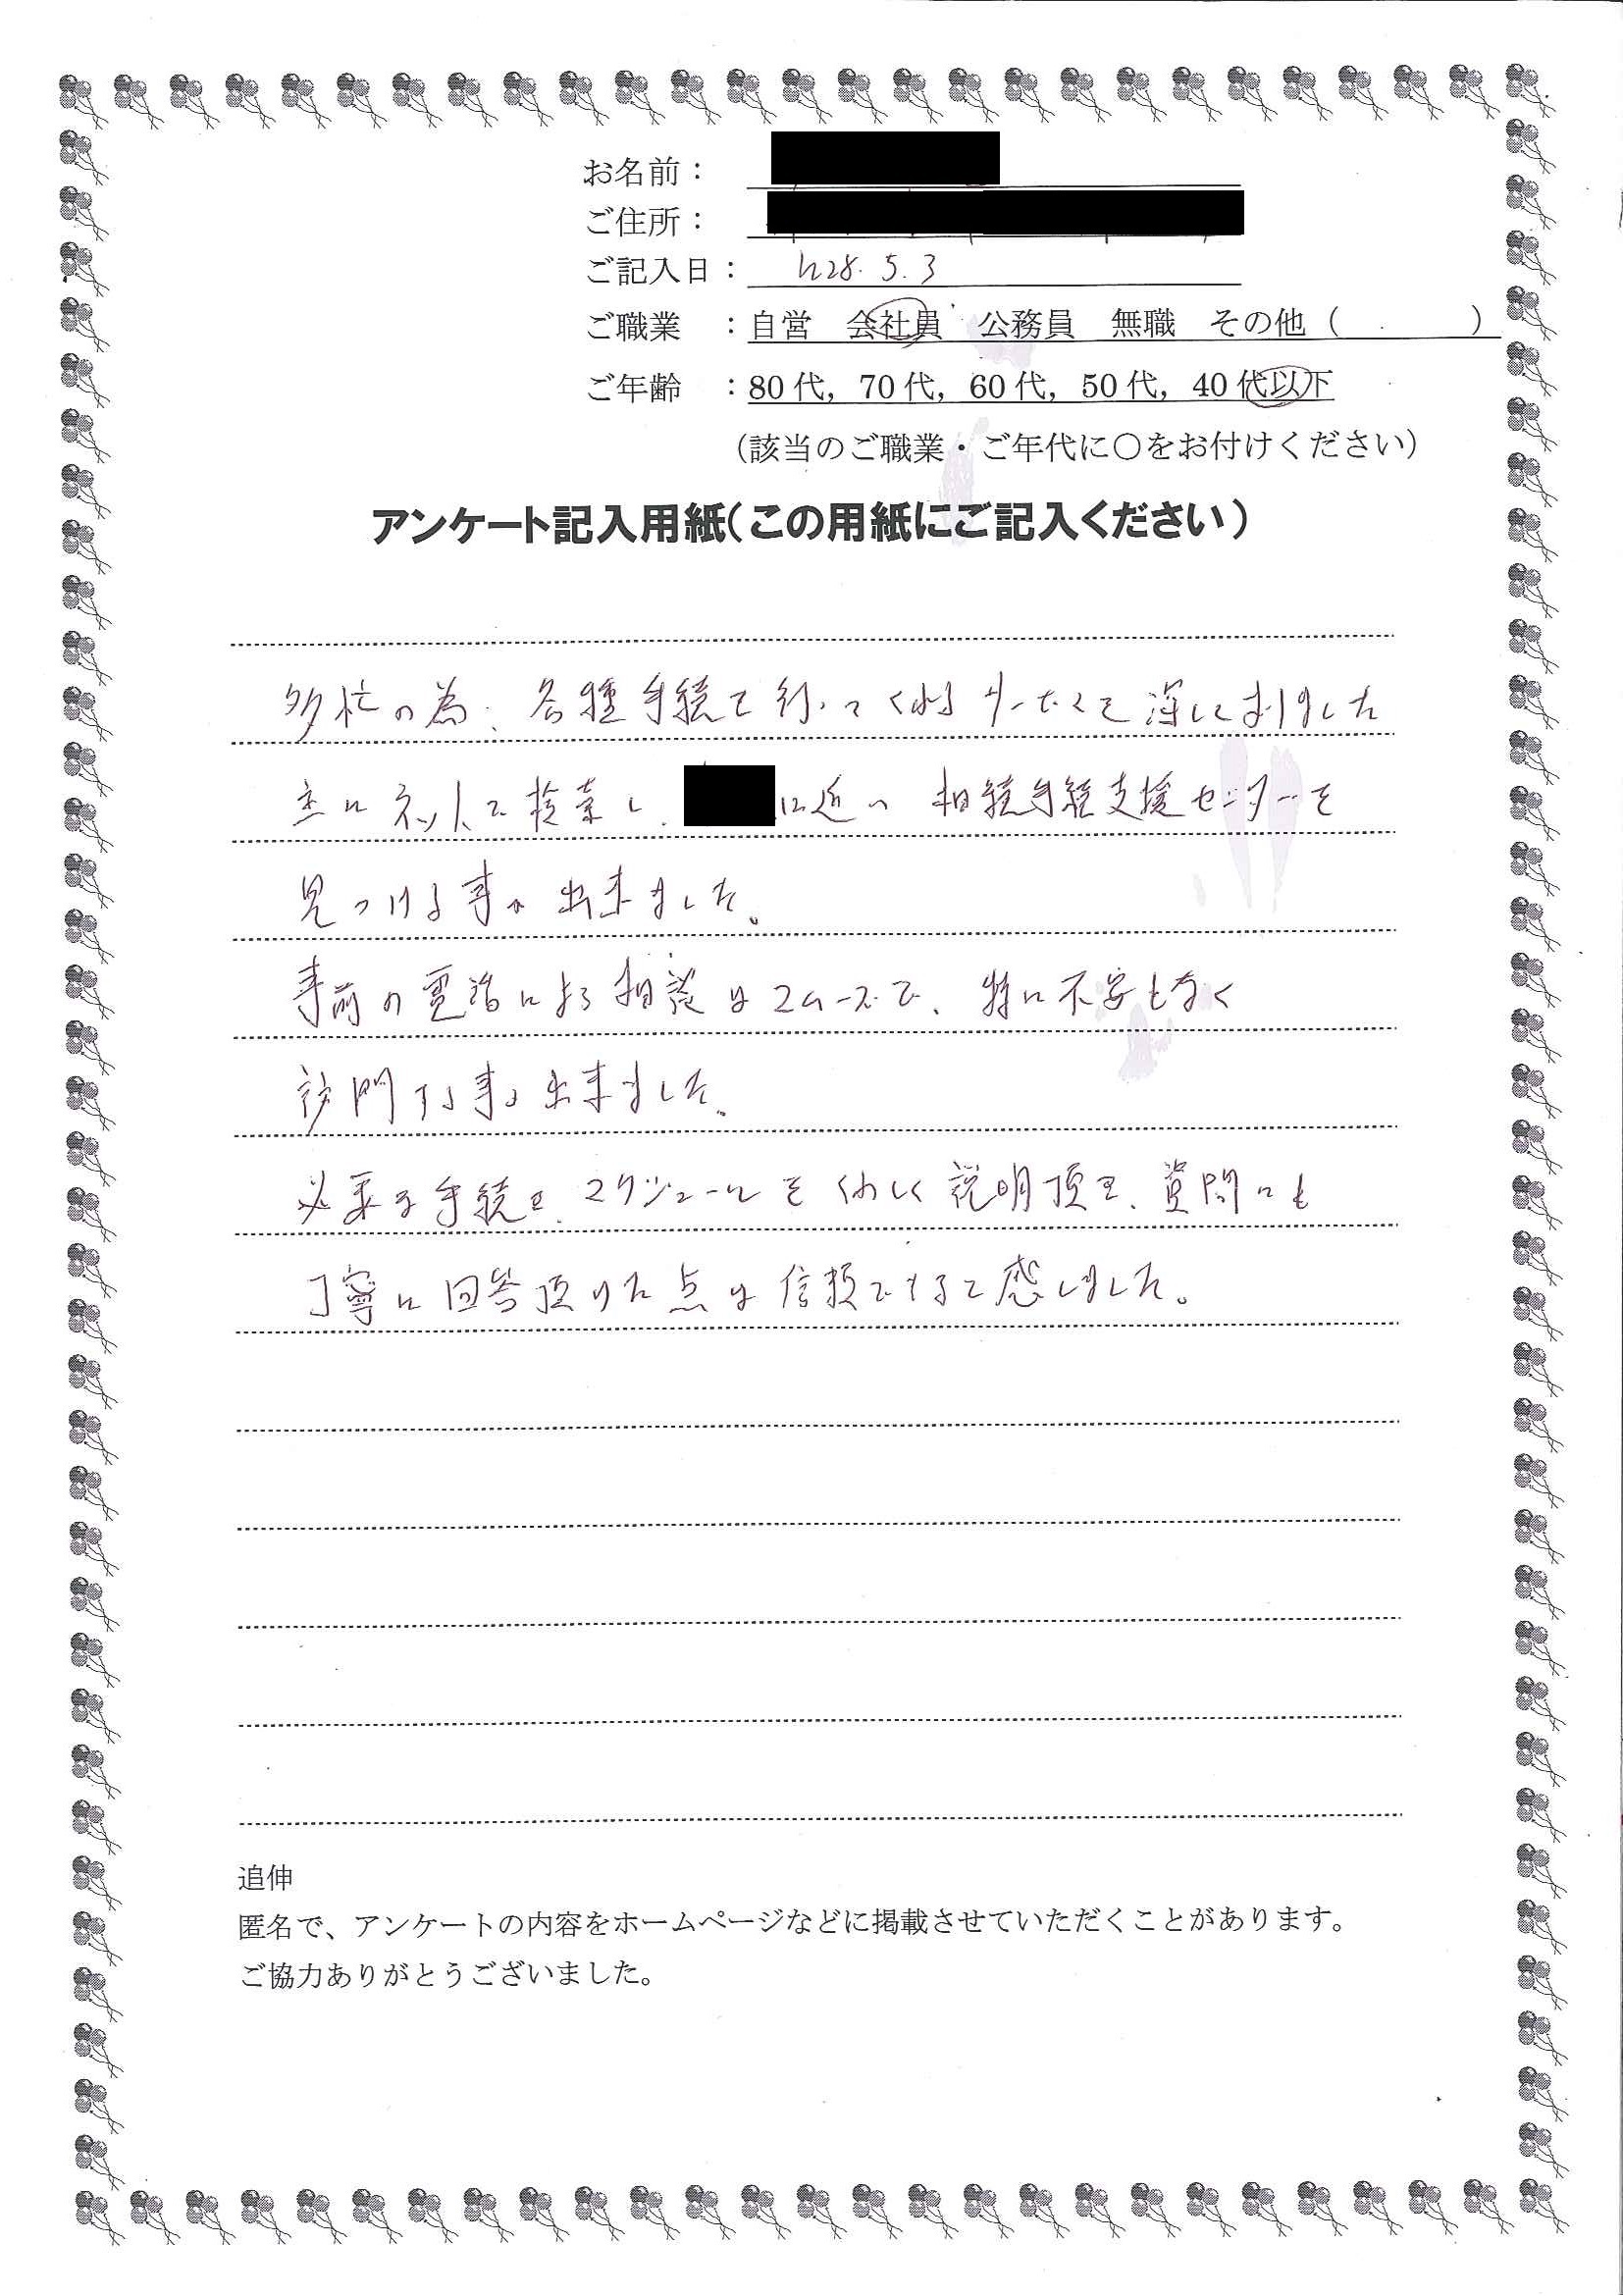 お名前：
ご住所：
ご記入日： H28.5.3
ご職業 ：自営 会社員 公務員 無職 その他（ ）
ご年齢 ：80代，70代，60代，50代，40代以下
（該当のご職業・ご年代に○をお付けください）
アンケート記入用紙（この用紙にご記入ください）
多忙の為、各種手続を行ってくれるサービスを探しておりました
主にネットで検索し、に近い相続手続支援センターを
見つける事が出来ました。
事前の電話による相談はスムーズで、特に不安もなく
訪問する事が出来ました。
必要な手続き、スケジュールをくわしく説明頂き、質問にも
丁寧に回答頂けた点は信頼できると感じました。
追伸
匿名で、アンケートの内容をホームページなどに掲載させていただくことがあります。
ご協力ありがとうございました。